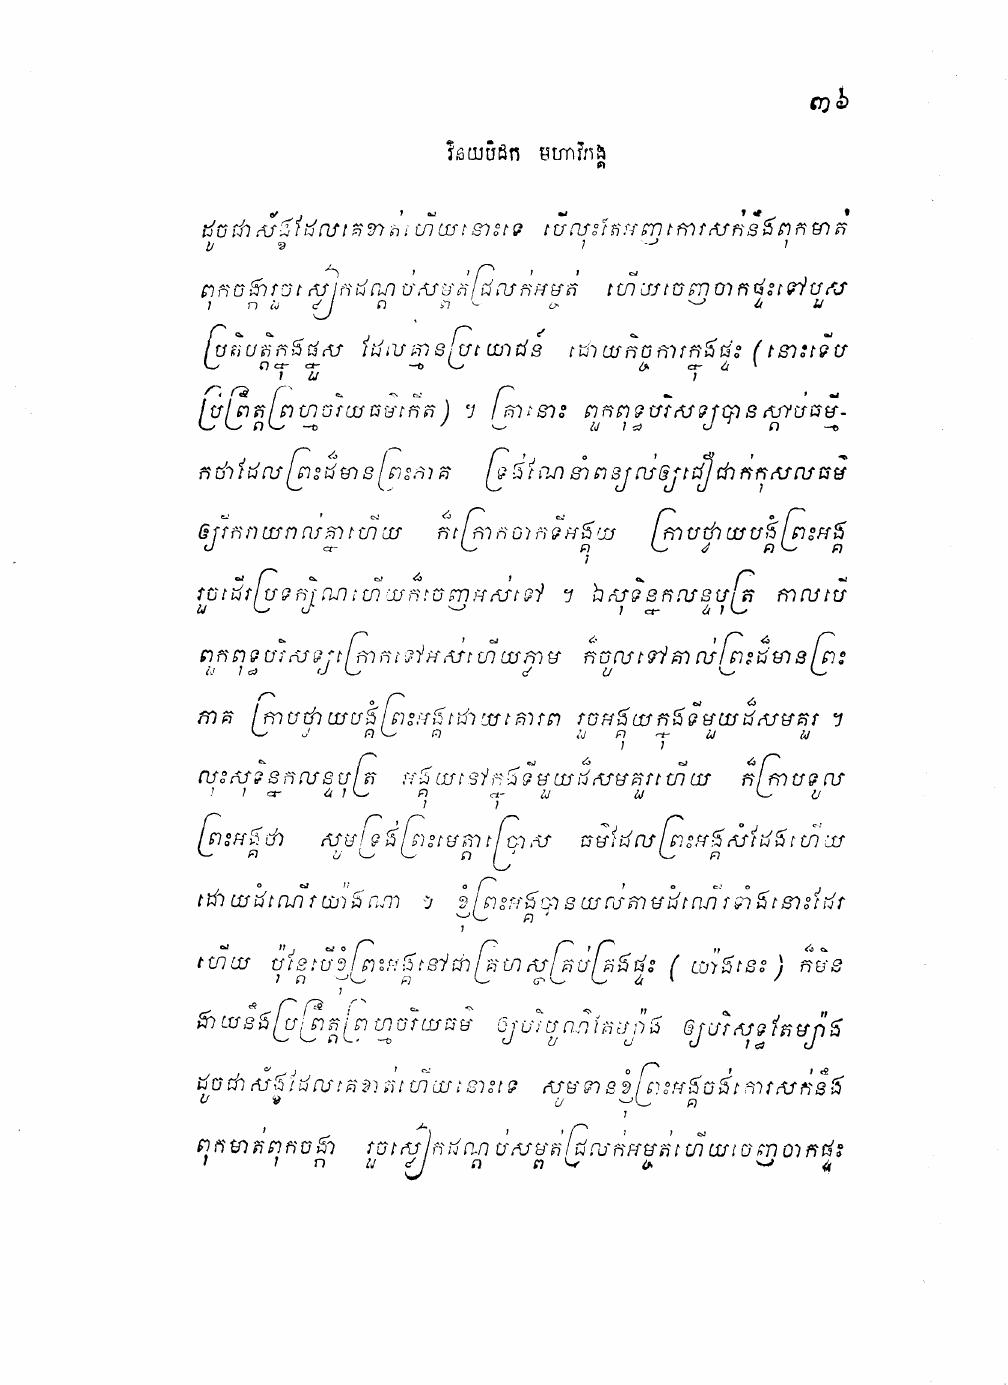 ៣៦
វិនយបិដក មហាវិភង្គ
ដូចជាស័ង្ខដែលគេខាត់ហើយនោះទេ បើលុះតែអញកោរសក់នឹងពុកមាត់
ពុកចង្ការួចស្លៀកដណ្តប់សម្ពត់ជ្រលក់អម្ចត់ ហើយចេញចាកផ្ទះទៅបួស
ប្រតិបត្តិក្នុងផ្នួស ដែលគ្មានប្រយោជន៍ ដោយកិច្ចការក្នុងផ្ទះ (នោះទើប
ប្រព្រឹត្តព្រហ្មចរិយធម៌កើត) ។ គ្រានោះ ពួកពុទ្ធបរិសទ្យបានស្តាប់ធម្មី-
កថាដែលព្រះដ៏មានព្រះភាគ ទ្រង់ណែនាំពន្យល់ឲ្យជឿជាក់កុសលធម៌
ឲ្យរីករាយរាល់គ្នាហើយ ក៏ក្រោកចាកទីអង្គុយ ក្រាបថ្វាយបង្គំព្រះអង្គ
រួចដើរប្រទក្សិណហើយក៏ចេញអស់ទៅ ។ ឯសុទិន្នកលន្ទបុត្រ កាលបើ
ពួកពុទ្ធបរិសទ្យក្រោកទៅអស់ហើយភ្លាម ក៏ចូលទៅគាល់ព្រះដ៏មានព្រះ
ភាគ ក្រាបថ្វាយបង្គំព្រះអង្គដោយគោរព រួចអង្គុយក្នុងទីមួយដ៏សមគួរ ។
លុះសុទិន្នកលន្ទបុត្រ អង្គុយនៅក្នុងទីមួយដ៏សមគួរហើយ ក៏ក្រាបទូល
ព្រះអង្គថា សូមទ្រង់ព្រះមេត្តាប្រោស ធម៌ដែលព្រះអង្គសំដែងហើយ
ដោយដំណើរយ៉ាងណា ៗ ខ្ញុំព្រះអង្គបានយល់តាមដំណើរទាំងនោះដែរ
ហើយ ប៉ុន្តែបើខ្ញុំព្រះអង្គនៅជាគ្រហស្ថគ្រប់គ្រងផ្ទះ (យ៉ាងនេះ) ក៏មិន
ងាយនឹងប្រព្រឹត្តព្រហ្មចរិយធម៌ ឲ្យបរិបូណ៌តែម្យ៉ាង ឲ្យបរិសុទ្ធតែម្យ៉ាង
ដូចជាស័ង្ខដែលគេខាត់ហើយនោះទេ សូមទានខ្ញុំព្រះអង្គចង់កោរសក់នឹង
ពុកមាត់ពុកចង្កា រួចស្លៀកដណ្តប់សម្ពត់ជ្រលក់អម្ចត់ហើយចេញចាកផ្ទះ